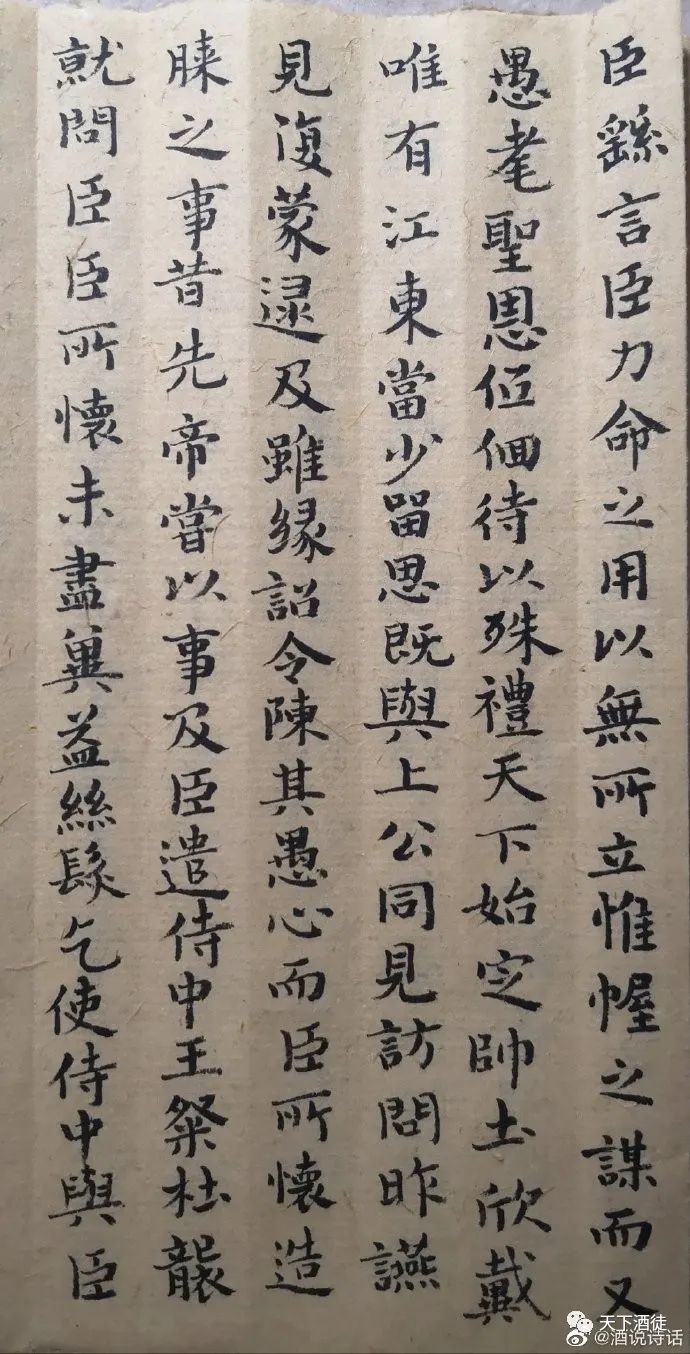 臣繇言臣力命之用以無所立惟幄之謀而又
愚耄聖恩低佪待以殊禮天下始定帥土欣戴
唯有江東當少留思既與上公同見訪問昨讌
見復蒙逮及雖緣詔令陳其愚心而臣所懷造
膝之事昔先帝嘗以事及臣遣侍中王粲杜襲
就問臣臣所懷未盡冀益絲髮乞使侍中與臣
天下酒徒
@酒说诗话